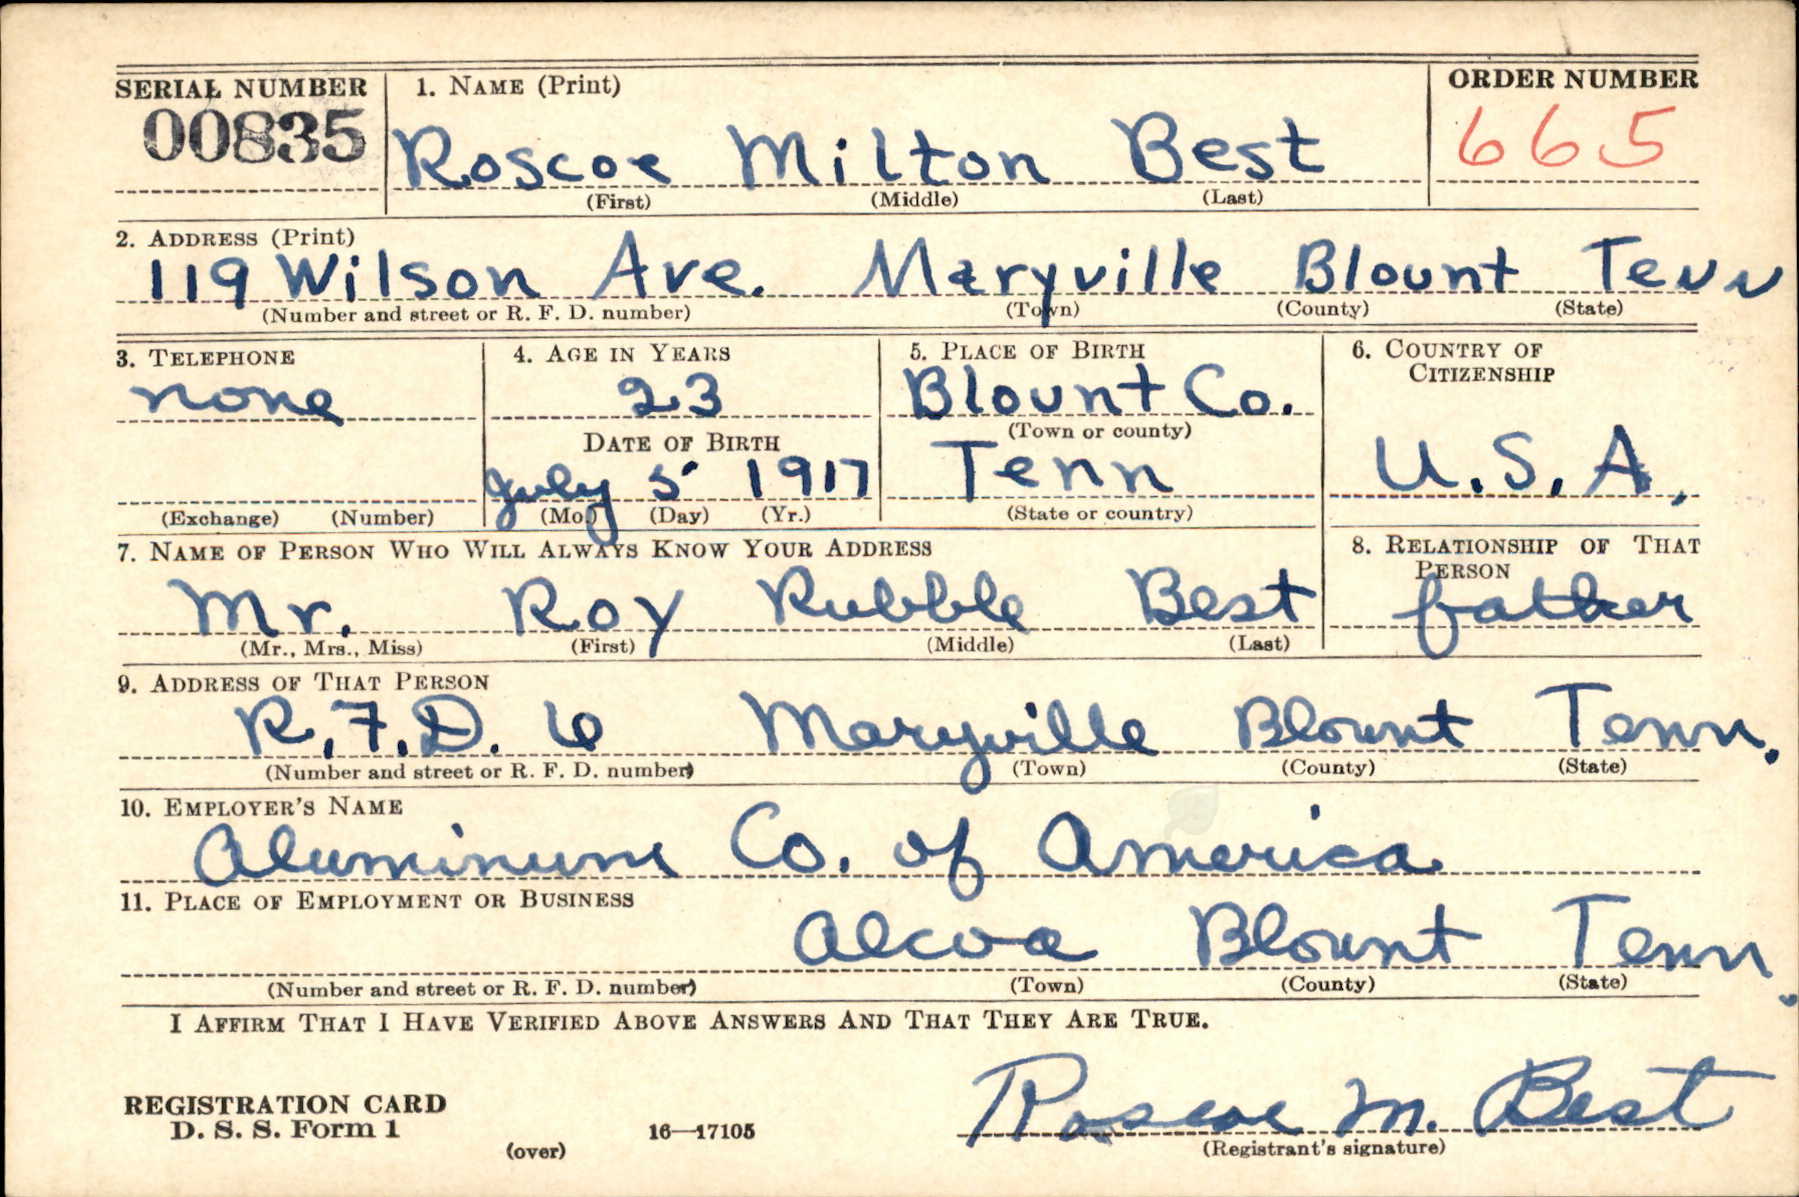 SERIAL NUMBER 1. NAME (Print) ORDER NUMBER
00835 Roscoe Milton Best 665
(First) (Middle) (Last)
2. ADDRESS (Print)
119 Wilson Ave. Maryville Blount Tenn
(Number and street or R. F. D. number) (Town) (County) (State)
3. TELEPHONE 4. AGE IN YEARS 5. PLACE OF BIRTH 6. COUNTRY OF
CITIZENSHIP
none 23 Blount Co.
DATE OF BIRTH (Town or county)
July 5 1917 Tenn U.S.A.
(Exchange) (Number) (Mo.) (Day) (Yr.) (State or country)
7. NAME OF PERSON WHO WILL ALWAYS KNOW YOUR ADDRESS 8. RELATIONSHIP OF THAT
PERSON
Mr. Roy Rubble Best father
(Mr., Mrs., Miss) (First) (Middle) (Last)
9. ADDRESS OF THAT PERSON
R.F.D. 6 Maryville Blount Tenn.
(Number and street or R. F. D. number) (Town) (County) (State)
10. EMPLOYER'S NAME
Aluminum Co. of America
11. PLACE OF EMPLOYMENT OR BUSINESS
Alcoa Blount Tenn.
(Number and street or R. F. D. number) (Town) (County) (State)
I AFFIRM THAT I HAVE VERIFIED ABOVE ANSWERS AND THAT THEY ARE TRUE.
REGISTRATION CARD
D. S. S. Form 1 16—17105 Roscoe M. Best
(over) (Registrant's signature)